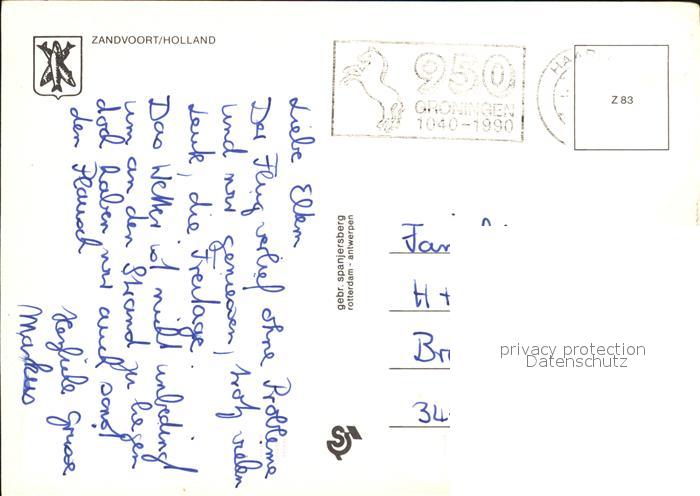 ZANDVOORT/HOLLAND
950
GRONINGEN
1040-1990
HAAR
Z 83
Liebe Eltern
Der Flug verlief ohne Probleme
und wir geniessen, trotz vielen
Leuk, die Freitage.
Das Wetter ist nicht unbedingt
um an den Strand zu liegen
doch haben wir auch sonst
den Plausch
Herzliche Grüsse
Markus
gebr. spanjersberg
rotterdam - antwerpen
Fam
H+
Br
34
privacy protection
Datenschutz